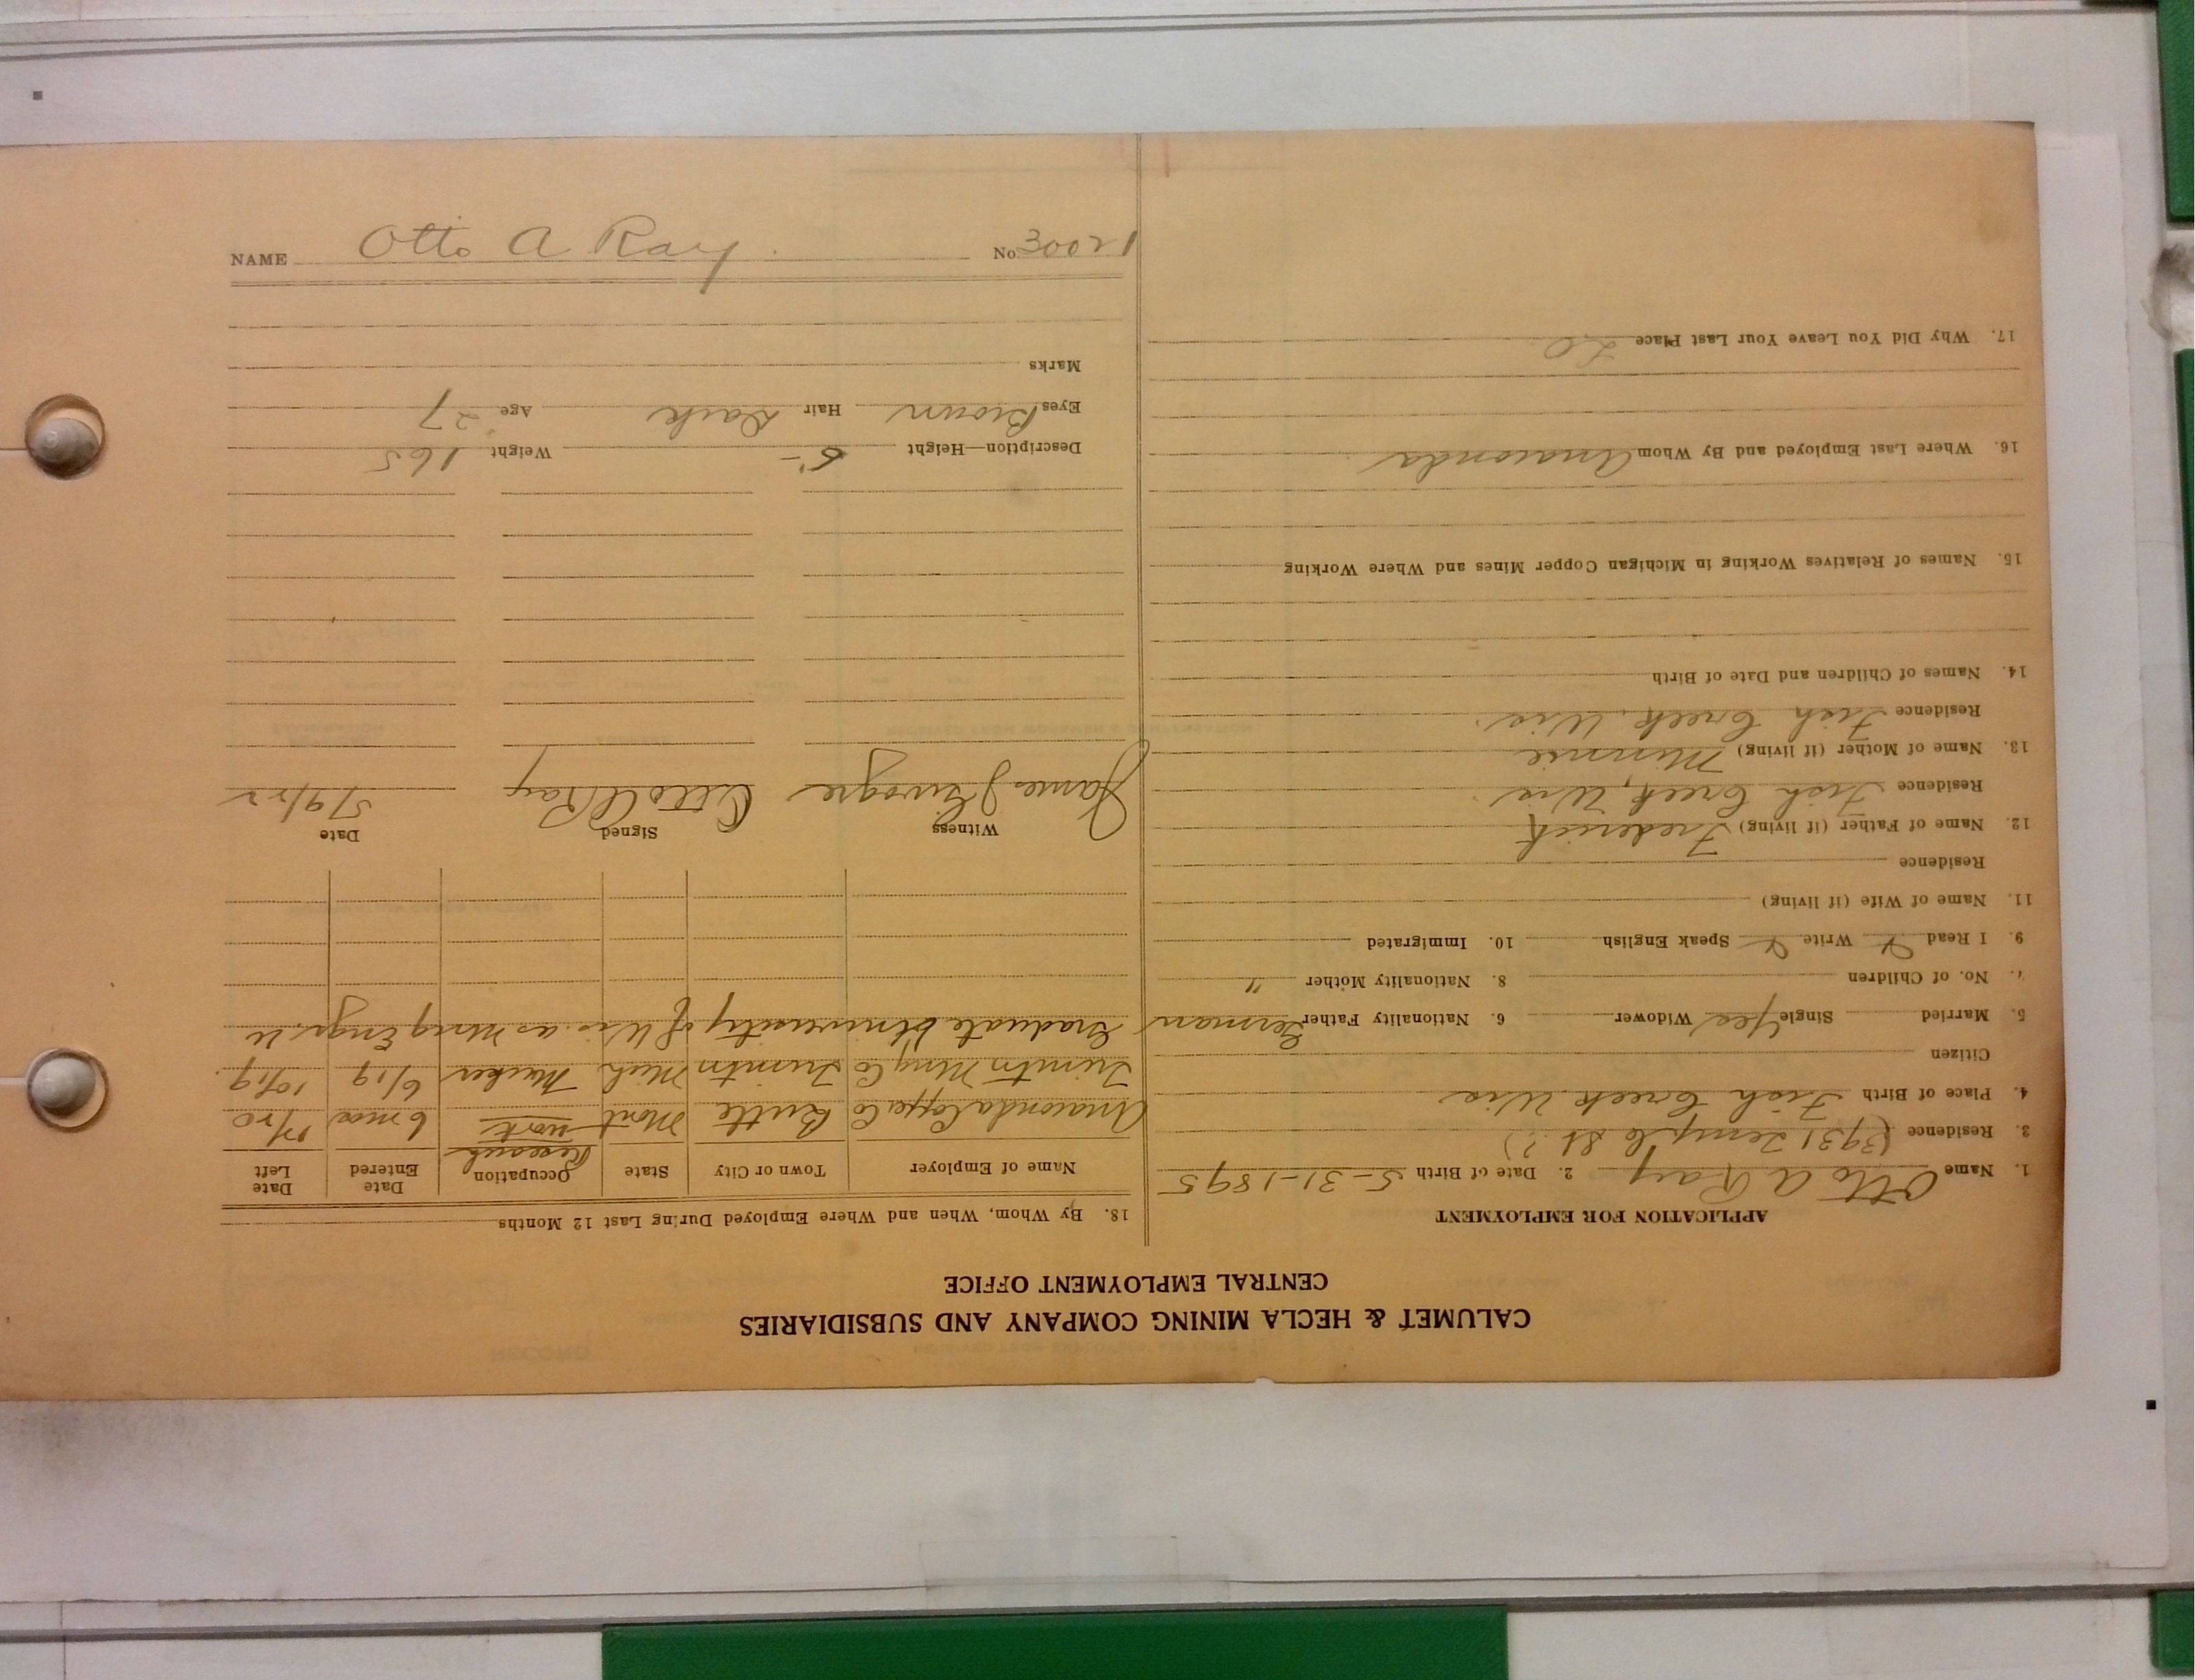 CALUMET & HECLA MINING COMPANY AND SUBSIDIARIES
CENTRAL EMPLOYMENT OFFICE
APPLICATION FOR EMPLOYMENT
1. Name Otto A Ray 2. Date of Birth 5-31-1895
3. Residence (3931 Temple St.?)
4. Place of Birth Fish Creek Wis
Citizen
5. Married Single Yes Widower 6. Nationality Father German
7. No. of Children 8. Nationality Mother "
9. I Read Write Speak English 10. Immigrated
11. Name of Wife (if living)
Residence
12. Name of Father (if living) Frederick
Residence Fish Creek, Wis
13. Name of Mother (if living) Minnie
Residence Fish Creek, Wis.
14. Names of Children and Date of Birth
15. Names of Relatives Working in Michigan Copper Mines and Where Working
16. Where Last Employed and By Whom Anaconda
17. Why Did You Leave Your Last Place
18. By Whom, When and Where Employed During Last 12 Months
Name of Employer Town or City State Occupation Date Entered Date Left
Anaconda Copper Co Butte Mont Research work 6 mos
Trimtn Mng Co Trimtn Mich Mucker 6/19 10/19.
Graduate University of Wis. as Minig Engr.
Witness Signed Date
James J Otto A Ray 5/9/22
Description—Height 5- Weight 165
Eyes Brown Hair Dark Age 27
Marks
NAME Otto A Ray. No. 30021